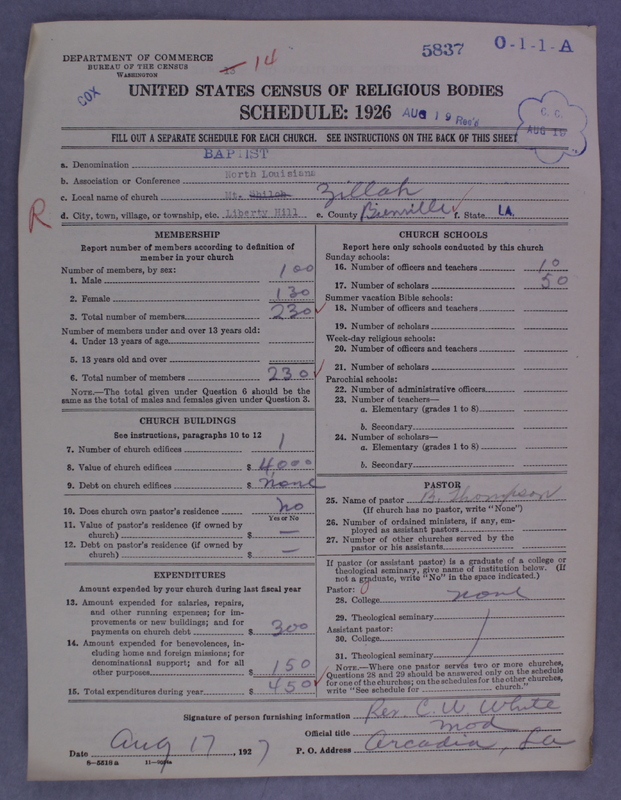 DEPARTMENT OF COMMERCE
BUREAU OF THE CENSUS
WASHINGTON
13 14
5837
O-1-1-A
COX
UNITED STATES CENSUS OF RELIGIOUS BODIES
SCHEDULE: 1926
AUG 19 Rec'd
C. C.
AUG 19
FILL OUT A SEPARATE SCHEDULE FOR EACH CHURCH. SEE INSTRUCTIONS ON THE BACK OF THIS SHEET
a. Denomination BAPTIST
b. Association or Conference North Louisiana
c. Local name of church Mt. Shiloh Zillah
R
d. City, town, village, or township, etc. Liberty Hill e. County Bienville f. State LA.
MEMBERSHIP
Report number of members according to definition of
member in your church
Number of members, by sex:
1. Male 100
2. Female 130
3. Total number of members 230
Number of members under and over 13 years old:
4. Under 13 years of age
5. 13 years old and over
6. Total number of members 230
NOTE.—The total given under Question 6 should be the
same as the total of males and females given under Question 3.
CHURCH BUILDINGS
See instructions, paragraphs 10 to 12
7. Number of church edifices 1
8. Value of church edifices $ 4000
9. Debt on church edifices $ none
10. Does church own pastor's residence no
Yes or No
11. Value of pastor's residence (if owned by
church) $ —
12. Debt on pastor's residence (if owned by
church) $ —
EXPENDITURES
Amount expended by your church during last fiscal year
13. Amount expended for salaries, repairs,
and other running expenses; for im-
provements or new buildings; and for
payments on church debt $ 300
14. Amount expended for benevolences, in-
cluding home and foreign missions; for
denominational support; and for all
other purposes $ 150
15. Total expenditures during year $ 450
CHURCH SCHOOLS
Report here only schools conducted by this church
Sunday schools:
16. Number of officers and teachers 10
17. Number of scholars 50
Summer vacation Bible schools:
18. Number of officers and teachers
19. Number of scholars
Week-day religious schools:
20. Number of officers and teachers
21. Number of scholars
Parochial schools:
22. Number of administrative officers
23. Number of teachers—
a. Elementary (grades 1 to 8)
b. Secondary
24. Number of scholars—
a. Elementary (grades 1 to 8)
b. Secondary
PASTOR
25. Name of pastor B. Thompson
(If church has no pastor, write "None")
26. Number of ordained ministers, if any, em-
ployed as assistant pastors
27. Number of other churches served by the
pastor or his assistants
If pastor (or assistant pastor) is a graduate of a college or
theological seminary, give name of institution below. (If
not a graduate, write "No" in the space indicated.)
Pastor:
28. College none
29. Theological seminary
Assistant pastor:
30. College
31. Theological seminary
NOTE.—Where one pastor serves two or more churches,
Questions 28 and 29 should be answered only on the schedule
for one of the churches; on the schedules for the other churches,
write "See schedule for church."
Signature of person furnishing information Rev. C. W. White
Official title mod
Date Aug 17, 1927 P. O. Address Arcadia, La
8—5518 a